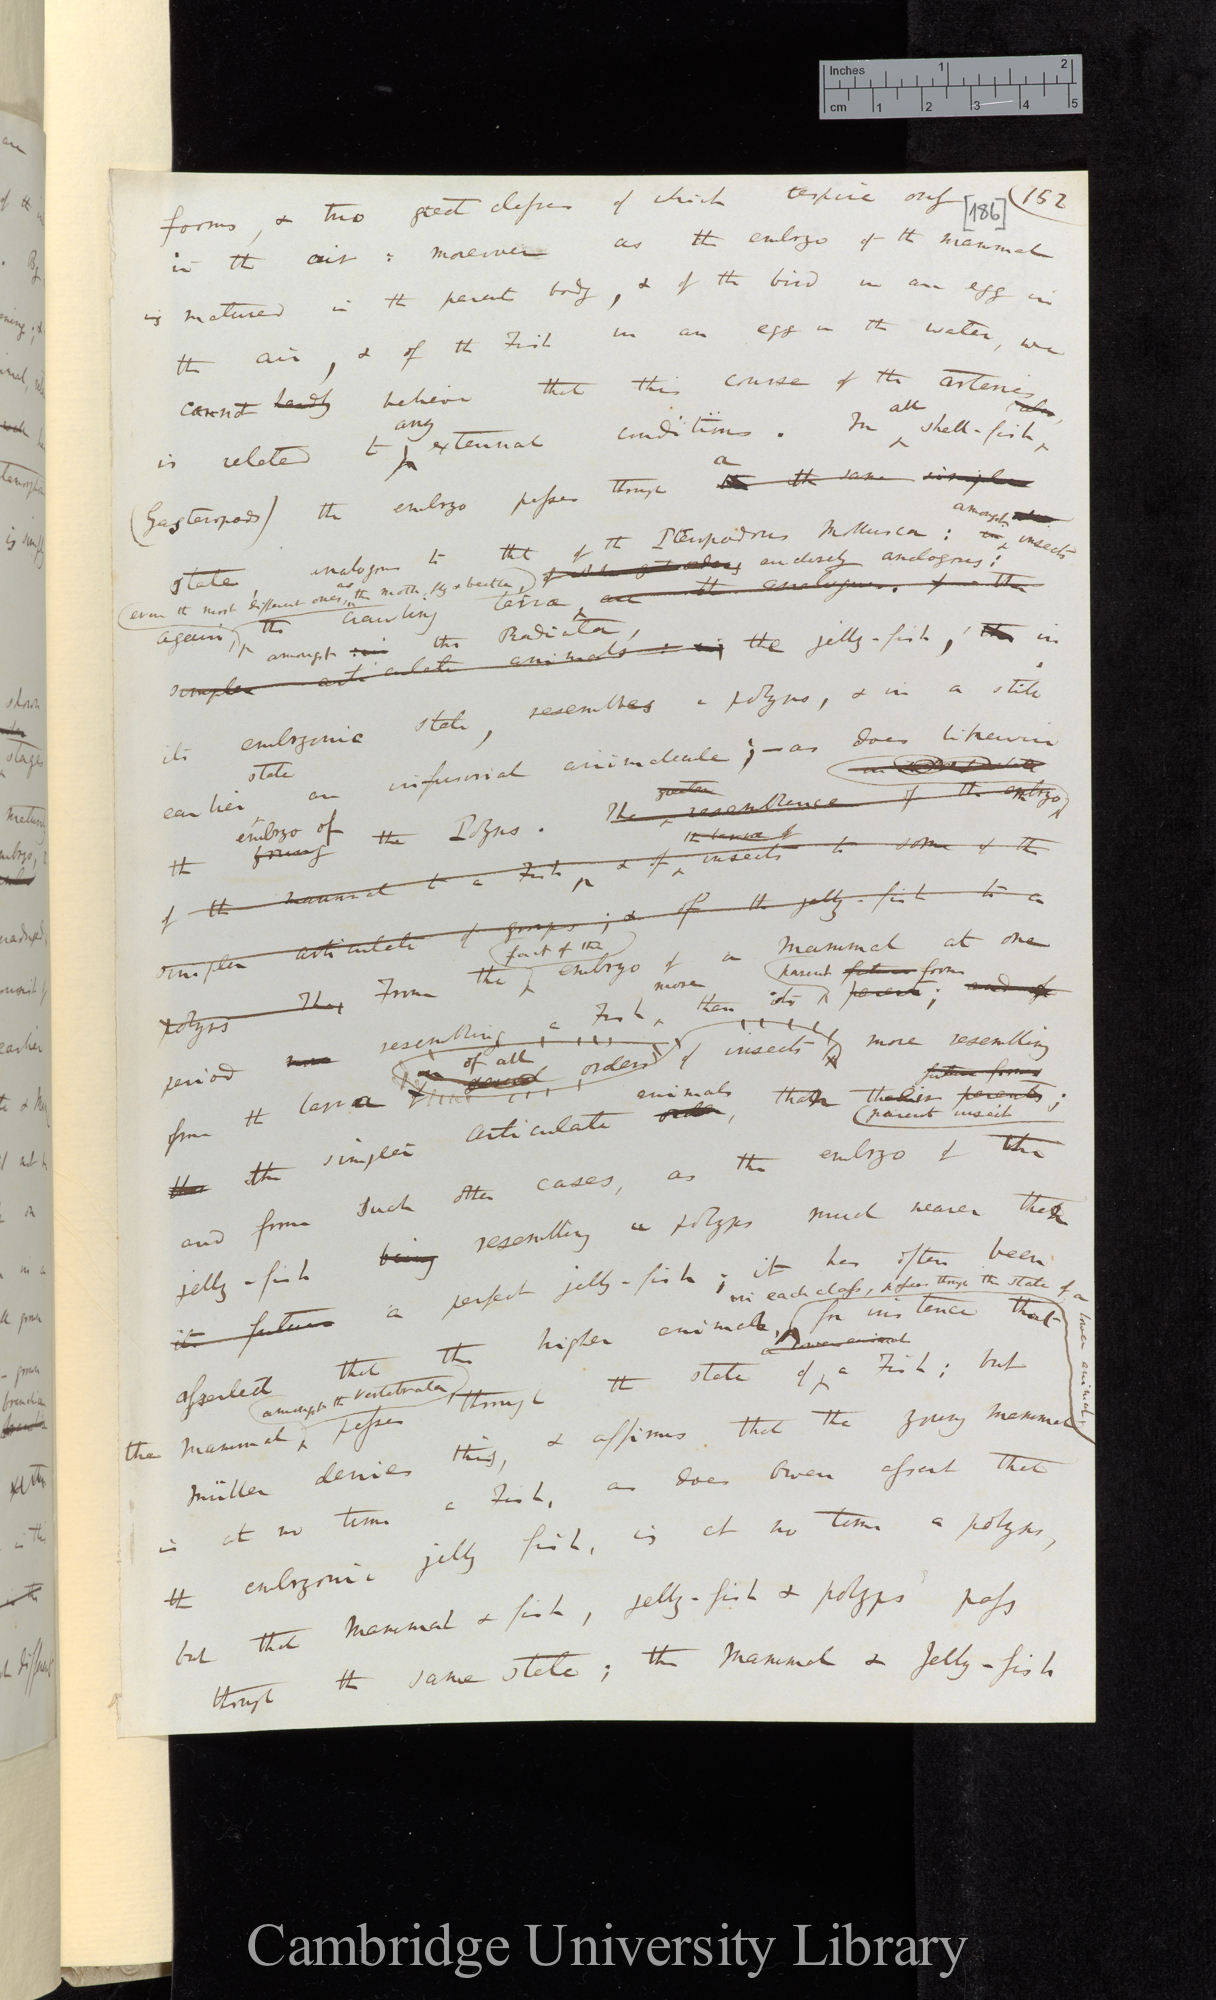 Inches 1 2
cm 1 2 3 4 5
[186] 152
forms, & two great classes of which respire only
in the air: moreover as the embryo of the mammal
is matured in the parent body, & of the bird in an egg in
the air, & of the Fish in an egg in the water, we
cannot hardly believe that this course of the arteries
is related to any external conditions. In all shell-fish, also,
(Gasteropods) the embryo passes through a the same simpler
state, analogous to that of the Pteropodous Mollusca: amongst insects
again, (even the most different ones, as the moth, fly & beetle) the crawling larvæ are entirely analogous:
simpler articulate animals: amongst the Radiata, the jelly-fish, in
its embryonic state, resembles a polypus, & in a still
earlier state an infusorial animalcule; – as does likewise
the embryo of young the Polypus. The greater resemblance of the embryo
of the mammal to a Fish, & of the larva of insects to some of the
simpler articulate groups; & of the jelly-fish to a
polypus They From the (fact of the) embryo of a mammal at one
period more resembling a Fish, more than its parent future form parent; and of
from the larva of all several orders of insects more resembling
the simpler articulate animals order, than their future forms parents; (parent insect
and from such other cases, as the embryo of the
jelly-fish being resembling a polypus much nearer than
its future a perfect jelly-fish; it has often been
asserted that the higher animal, in each class, passes through the state of a lower animal; for instance that
the Mammal, amongst the vertebrata, passes through the state of a lower animal a Fish; but
Müller denies this, & affirms that the young Mammal
is at no time a Fish, as does Owen assert that
the embryonic jelly fish, is at no time a polypus,
but that Mammal & fish, jelly-fish & polypus pass
through the same state; the Mammal & Jelly-fish
Cambridge University Library